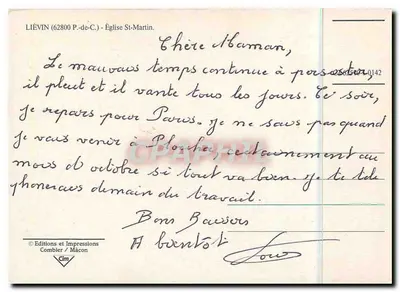 LIÉVIN (62800 P.-de-C.) - Église St-Martin.
Chère Maman,
Le mauvais temps continue à persister,
il pleut et il vante tous les jours. Ce soir,
je repars pour Paris. Je ne sais pas quand
je vais venir à certainement au
mois d'octobre si tout va bien. Je te télé
phonerais demain du travail.
Bons Baisers
A bientôt
© Editions et Impressions
Combier / Mâcon
Cim